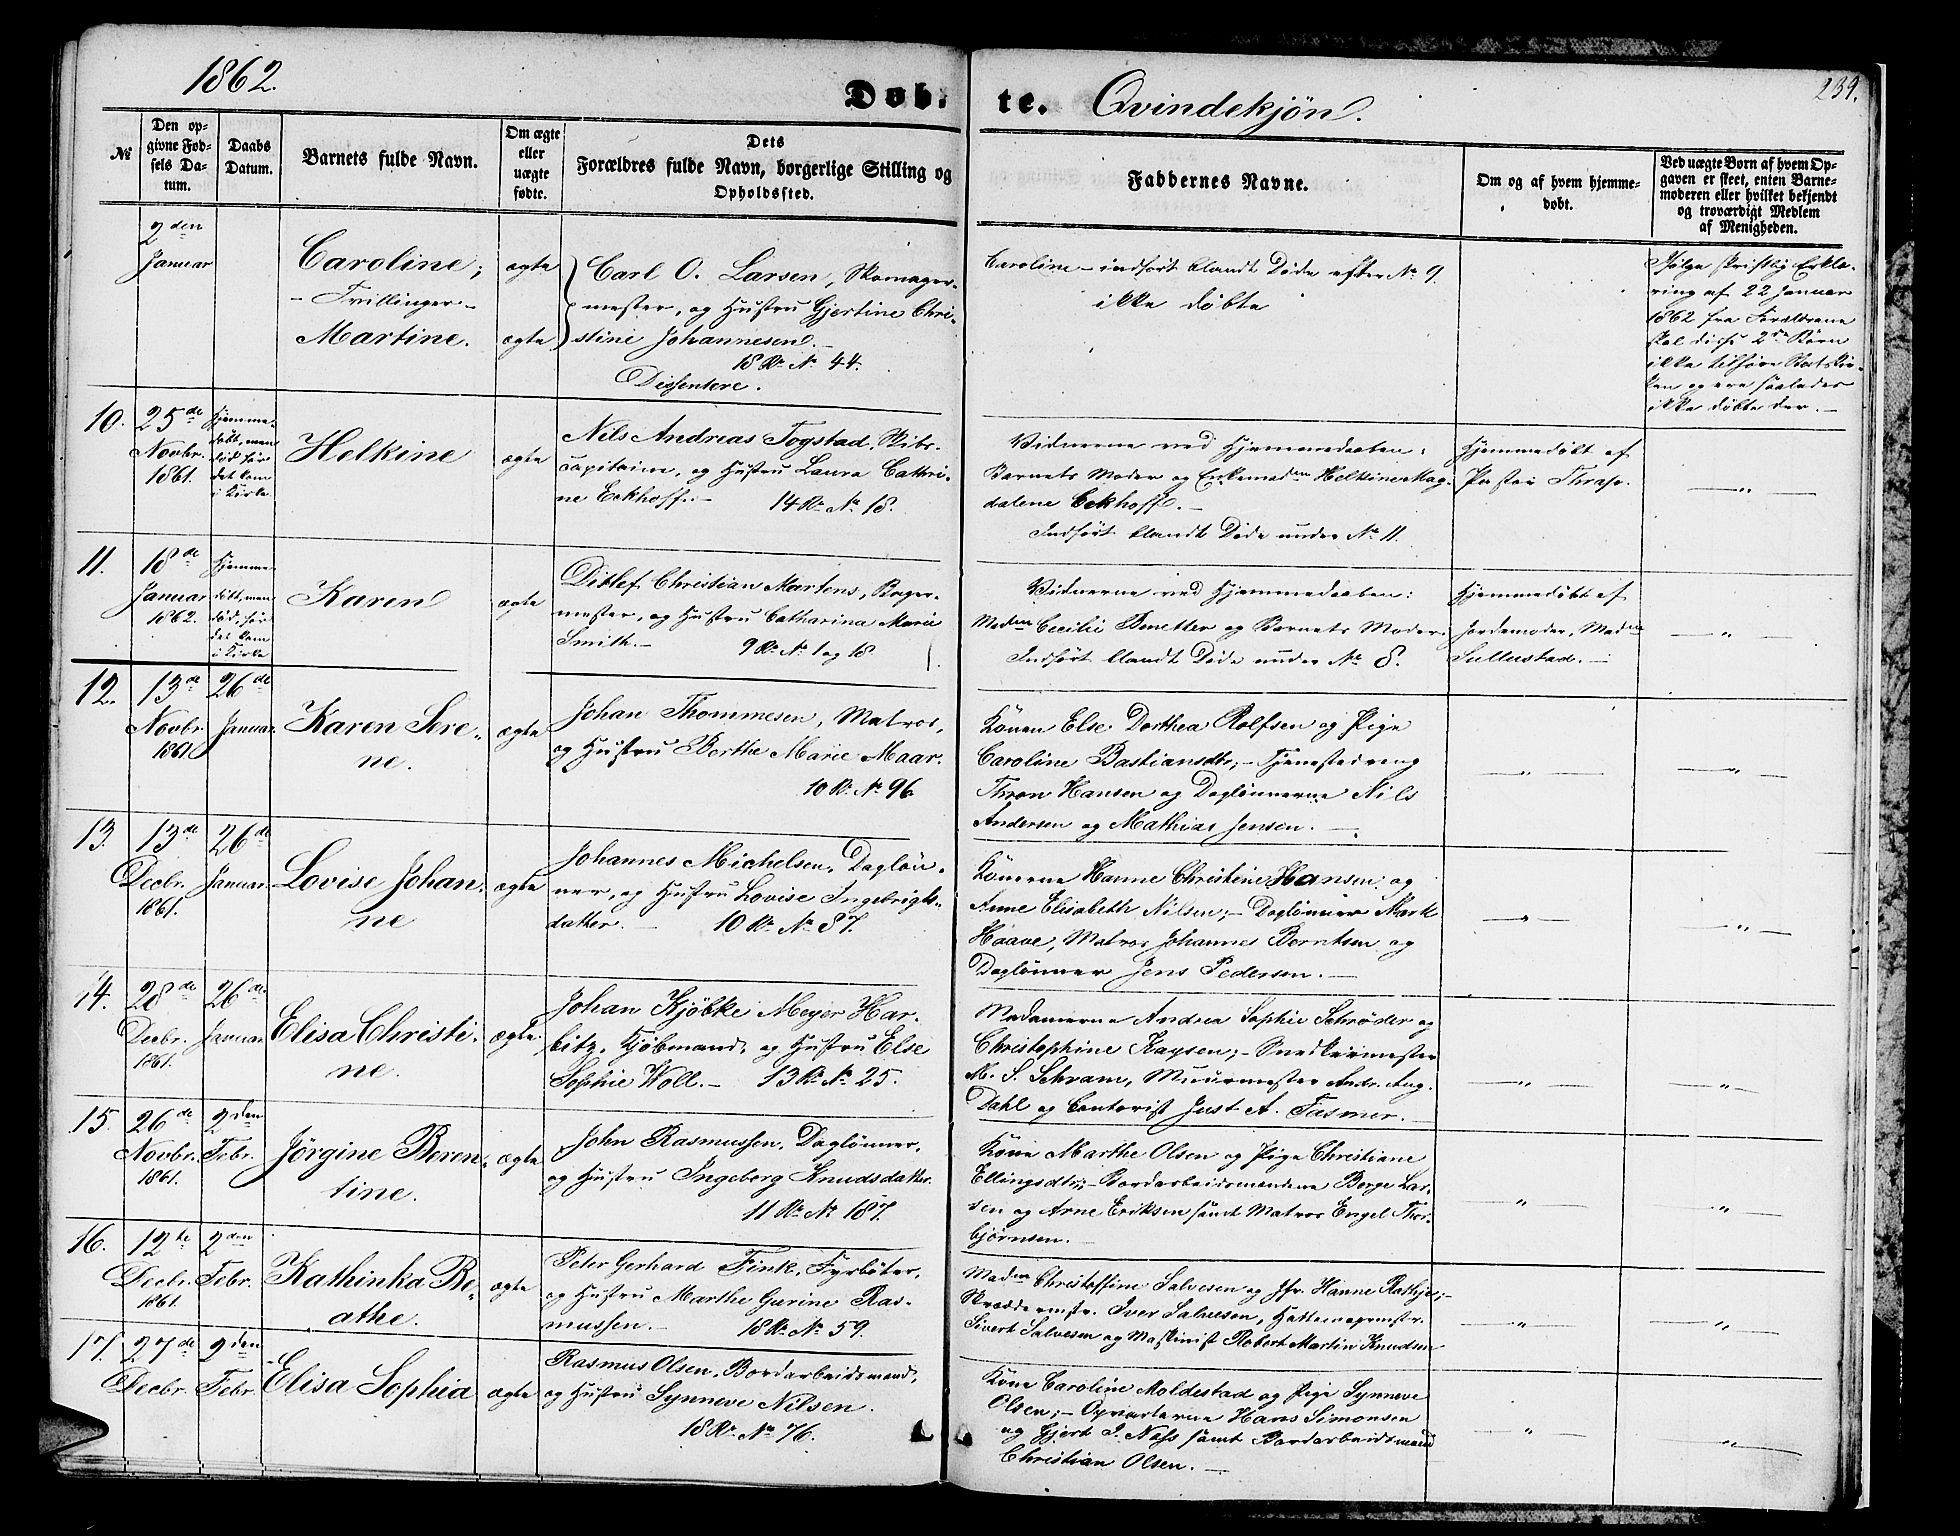 1862.
Döb-
te. Qvindekjøn.
239.
№
Den op-
givne Fød-
sels Da-
tum.
Daabs
Datum.
Barnets fulde Navn.
Om ægte
eller
uægte
fødte.
Dets
Forældres fulde Navn, borgerlige Stilling og
Opholdssted.
Faddernes Navne.
Om og af hvem hjemme-
døbt.
Ved uægte Born af hvem Op-
gaven er skeet, enten Barne-
moderen eller hvilket bekjendt
og troværdigt Medlem
af Menigheden.
2den
Januar
Caroline;
- Tvillinger -
Martine.
ægte
ægte
Carl O. Larsen, Skomager-
mester, og Hustru Gjertine Chri-
stine Johannesen.
18 R. No 44.
Dissentere.
Caroline - indført blandt Døde efter No 9.
ikke døbte
Ifølge skriftlig Erklæ-
ring af 22 Januar
1862 fra Forældrene
skal disse 2de Børn
ikke tilhøre Statskir-
ken og ere saaledes
ikke døbte der. -
10.
25de
Novbr.
1861.
Hjemme-
døbt, men
død før
det kom
i Kirke
Helkine
ægte
Nils Andreas Fogstad, Skibs-
capitaine, og Hustru Laura Cathri-
ne Eckhoff. -
14 R. No 18.
Vidnerne ved Hjemmedaaben:
Barnets Moder og Enkemadm Helkine Mag-
dalene Eckhoff. -
Indført blandt Døde under No 11.
Hjemmedøbt af
Pastor Thrap.
- „ -
11.
18de
Januar
1862.
Hjemme-
døbt, men
død, før
det kom
i Kirke
Karen
ægte
Ditlef Christian Martens, Bager-
mester, og Hustru Catharina Marie
Smith. -
9 R. No 1 og 18.
Vidnerne ved Hjemmedaaben:
Madm Cecilie Benetter og Barnets Moder.
Indført blandt Døde under No 8.
Hjemmedøbt af
Jordemoder, Madm
Sullustad. -
- „ -
12.
13de
Novbr
1861.
26de
Januar.
Karen Sere-
ne.
ægte
Johan Thommesen, Matros,
og Hustru Berthe Marie Maar.
10 R. No 96.
Konen Else Dorthea Rolfsen og Pige
Caroline Bastiansdtr; - Tjenestedreng
Thron Hansen og Daglønnerne Nils
Andersen og Mathias Jensen. -
- „ -
- „ -
13.
13de
Decbr.
1861.
26de
Januar.
Lovise Johan-
ne
ægte
Johannes Michelsen, Dagløn-
ner, og Hustru Lovise Ingebrigts-
datter. -
10 R. No 87.
Konerne Hanne Christine Hansen; og
Anne Elisabeth Nilsen; - Daglønner Mark
Haave, Matros Johannes Berntsen og
Daglønner Jens Pedersen. -
- „ -
- „ -
14.
28de
Decbr.
1861.
26de
Januar
Elisa Christi-
ne.
ægte.
Johan Kjöbke Meyer Har-
bitz, Kjöbmand, og Hustru Else
Sophie Woll. - 13 R. No 25.
Madamerne Andrea Sophie Schrøder og
Christophine Kaysen; - Snedkermester
M. S. Schram, Muurmester Andr. Aug.
Dahl og Contorist Just A. Fasmer.
- „ -
- „ -
15.
26de
Novbr.
1861.
2den
Febr.
Jørgine Beren-
tine.
ægte
John Rasmussen, Daglønner,
og Hustru Ingeborg Knudsdatter.
11 R. No 187.
Kone Marthe Olsen og Pige Christiane
Ellingsdtr; - Bordarbeidsmændene Berge Lar-
sen og Arne Eriksen samt Matros Engel Thor-
bjørnsen. -
- „ -
- „ -
16.
12te
Decbr.
1861.
2den
Febr.
Kathinka Be-
athe.
ægte
Peter Gerhard Fink, Fyrbøter,
og Hustru Marthe Gurine Ras-
mussen. -
18 R. No 59.
Madm Christoffine Salvesen og Jfr. Hanne Rathje; -
Skræddermstr. Iver Salvesen, Hattemagermstr.
Sivert Salvesen og Maskinist Robert Martin Knudsen
- „ -
- „ -
17.
27de
Decbr.
2den
Febr.
Elisa Sophia
ægte
Rasmus Olsen, Bordarbeidsmand,
og Hustru Synneve Nilsen.
18 R. No 76.
Kone Caroline Moldestad og Pige Synneve
Olsen; - Opvarterne Hans Simonsen
og Gjert I. Næss samt Bordarbeidsmand
Christian Olsen. -
- „ -
- „ -